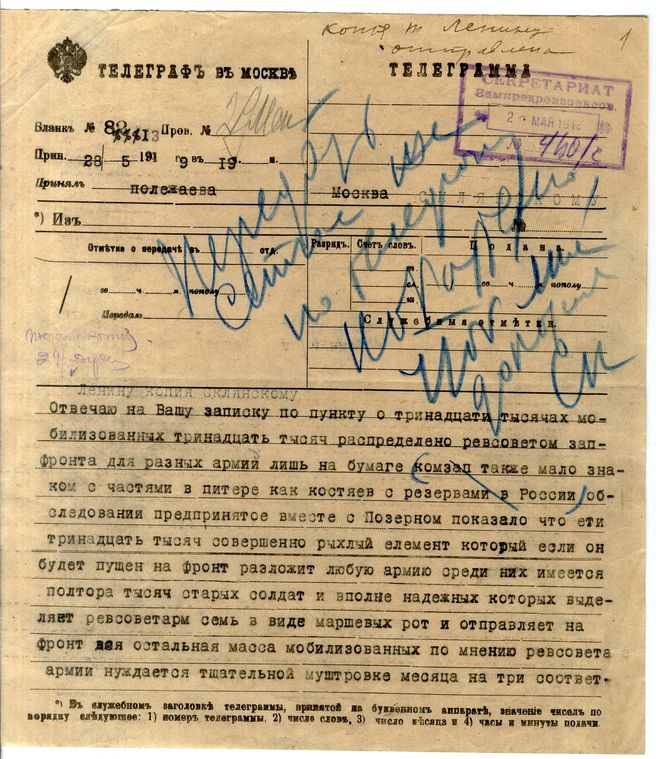 копия т Ленину
отправлена
1
ТЕЛЕГРАФЪ ВЪ МОСКВѢ
ТЕЛЕГРАММА
СЕКРЕТАРИАТ
Зампредреввоенсов.
МАЯ 1919
Бланкъ № 82 Пров. №
Прин. 28/5 191 9 в 19 м.
Принялъ полежаева
Москва СКЛЯНСКОМУ
*) Изъ
№
Отмѣтка о передачѣ въ отд.
Разрядъ. Счетъ словъ. Подана.
го ч. м. пополу
го ч. м. пополу
Передалъ
Служебныя отмѣтки.
Передать
по телефону
доложите
Ск
Ленину копия Склянскому
Отвечаю на Вашу записку по пункту о тринадцати тысячах мо-
билизованных тринадцать тысяч распределено ревсоветом зап-
фронта для разных армий лишь на бумаге (комзап также мало зна-
ком с частями в питере как костяев с резервами в России) об-
следовании предпринятое вместе с Позерном показало что ети
тринадцать тысяч совершенно рыхлый елемент который если он
будет пущен на фронт разложит любую армию среди них имеется
полтора тысяч старых солдат и вполне надежных которых выде-
ляет ревсоветарм семь в виде маршевых рот и отправляет на
фронт вся остальная масса мобилизованных по мнению ревсовета
армии нуждается тщательной муштровке месяца на три соответ-
*) Въ служебномъ заголовкѣ телеграммы, принятой на буквенномъ аппаратѣ, значеніе чиселъ по
порядку слѣдующее: 1) номеръ телеграммы, 2) число словъ, 3) число мѣсяца и 4) часы и минуты подачи.